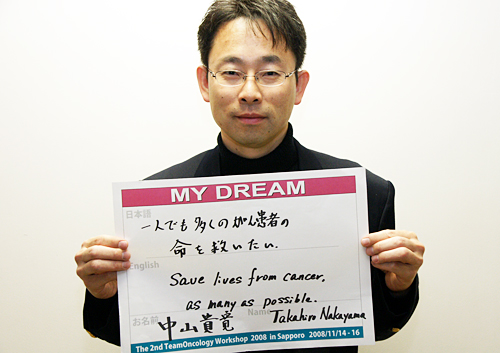 MY DREAM
日本語
一人でも多くのがん患者の
命を救いたい.
English
Save lives from cancer,
as many as possible.
お名前 中山貴寛 Name Takahiro Nakayama
The 2nd TeamOncology Workshop 2008 in Sapporo 2008/11/14 - 16